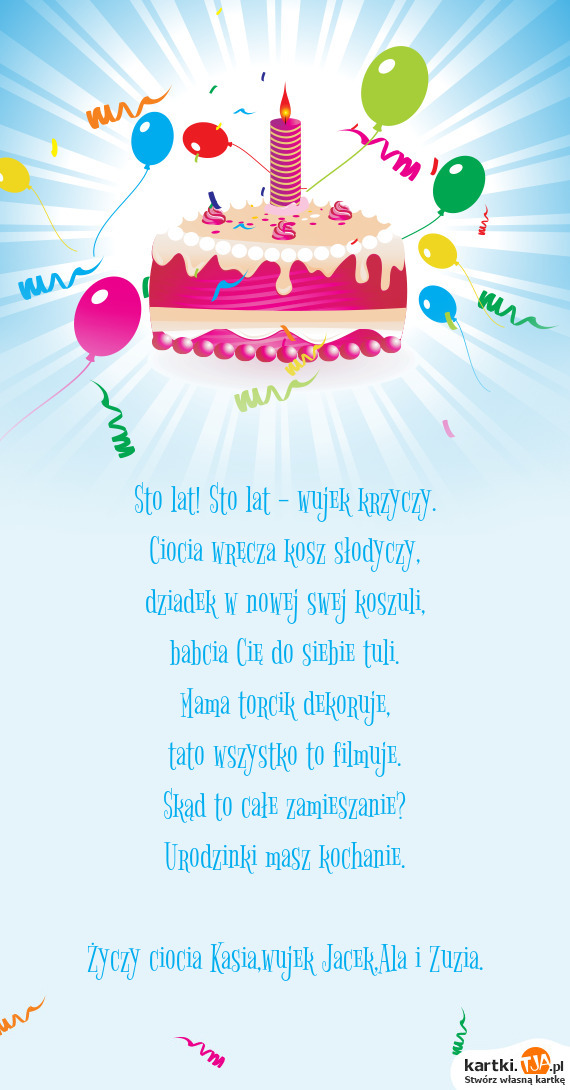 Sto lat! Sto lat - wujek krzyczy.
Ciocia wręcza kosz słodyczy,
dziadek w nowej swej koszuli,
babcia Cię do siebie tuli.
Mama torcik dekoruje,
tato wszystko to filmuje.
Skąd to całe zamieszanie?
Urodzinki masz kochanie.
Życzy ciocia Kasia,wujek Jacek,Ala i Zuzia.
kartki.TJA.pl
Stwórz własną kartkę